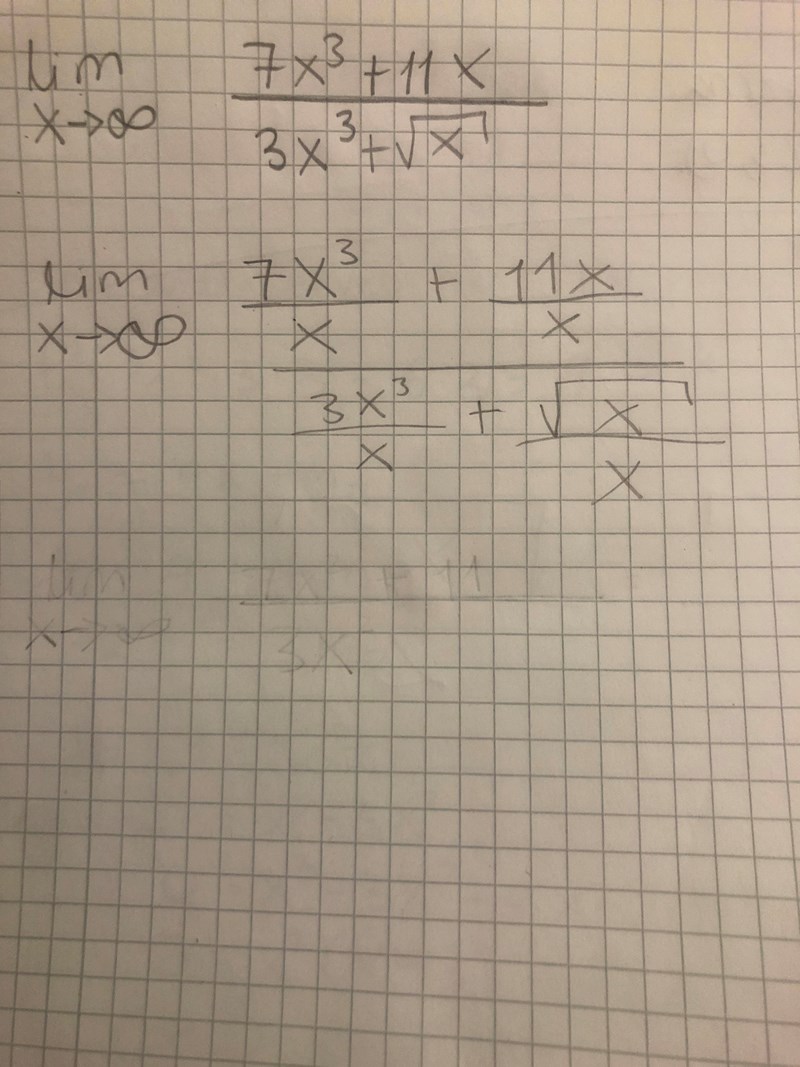 lim 7x³+11x
x→∞ 3x³+√x
lim 7x³/x + 11x/x
x→∞ 3x³/x + √x/x
lim + 11
x→∞ 3x